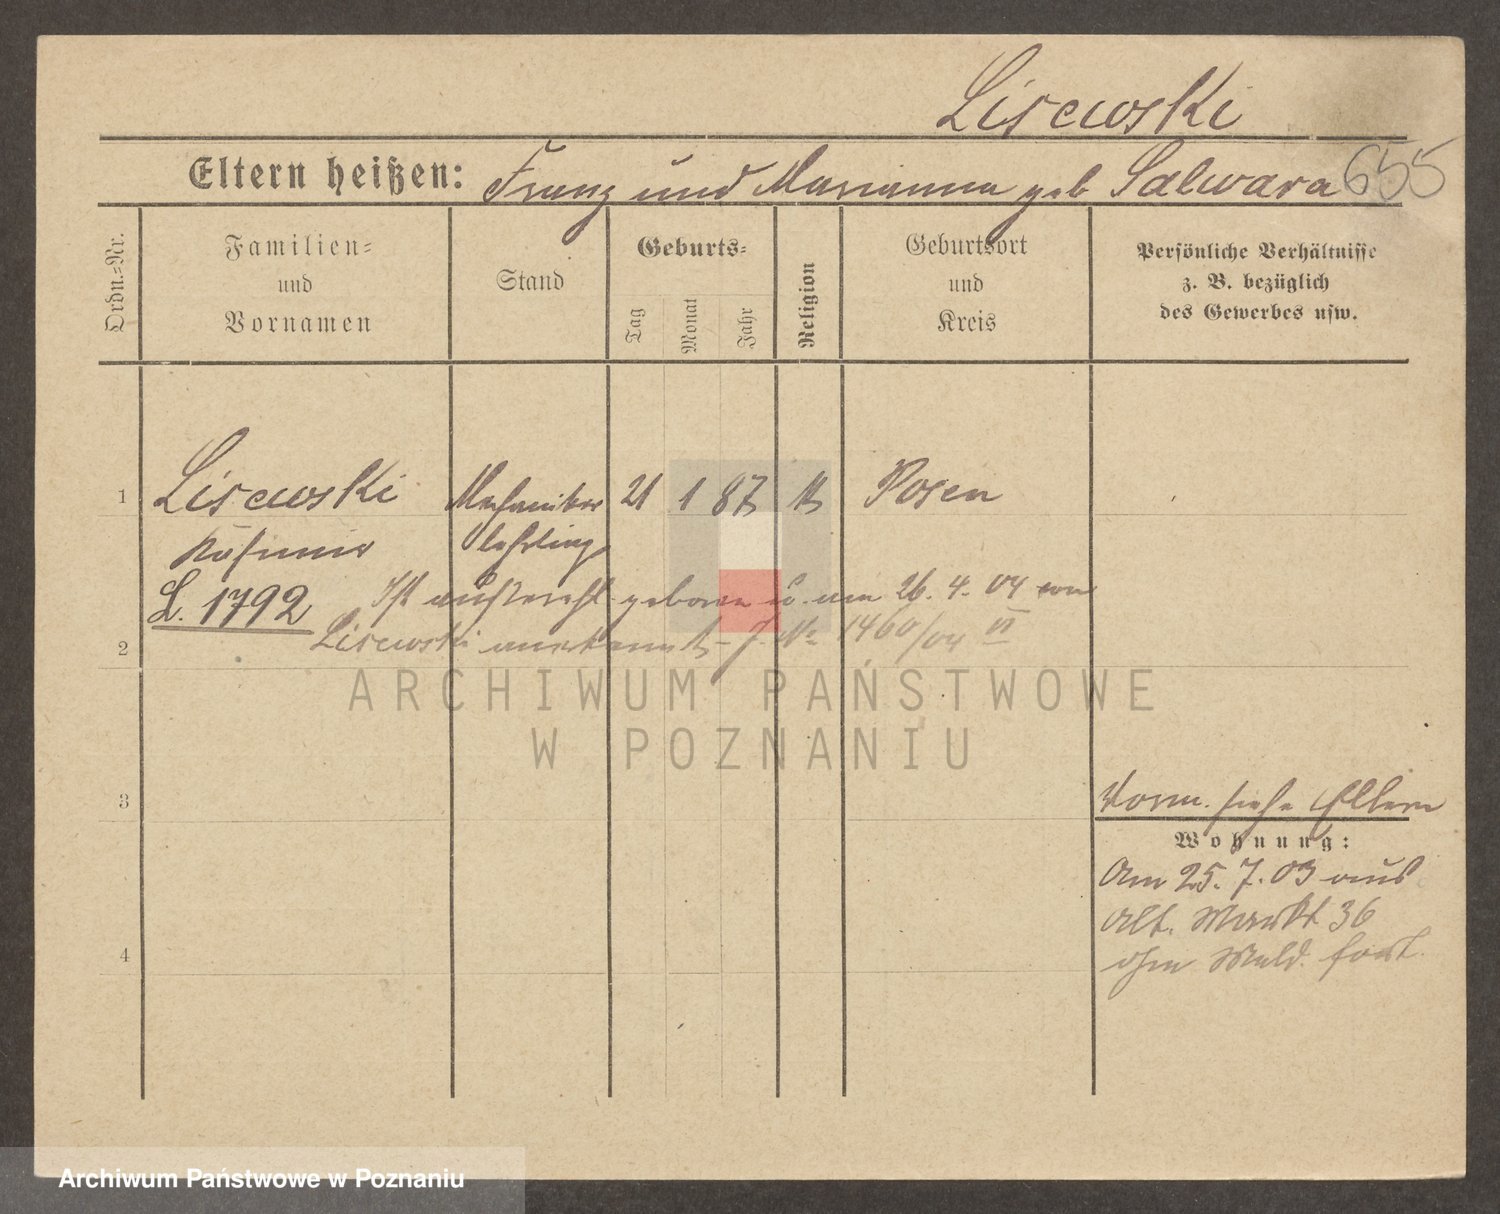 Lisewski
Eltern heißen: Franz und Marianna geb Salwara 655
Ordn.=Nr.
Familien=
und
Vornamen
Stand
Geburts=
Tag
Monat
Jahr
Religion
Geburtsort
und
Kreis
Persönliche Verhältnisse
z. B. bezüglich
des Gewerbes usw.
1 Lisewski Mechaniker 21 1 87 k Posen
Kasimir lehrling
L. 1792 Ist außerehl. geboren u. am 26. 4. 04 von
2 Lisewski anerkannt - J. № 1460/04 VI
ARCHIWUM PAŃSTWOWE
W POZNANIU
3
Vorm. siehe Eltern
Wohnung:
Am 25. 7. 03 aus
Alt. Markt 36
4 ohne Meld. fort.
Archiwum Państwowe w Poznaniu